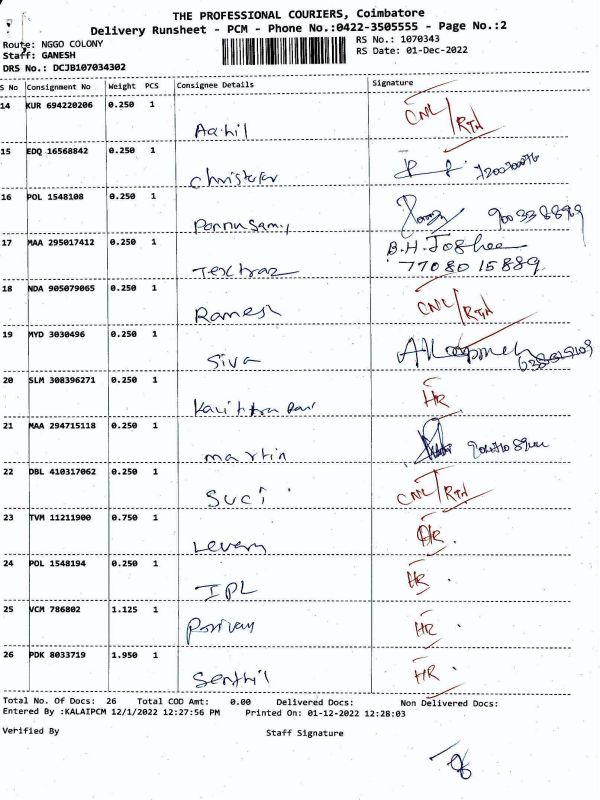 THE PROFESSIONAL COURIERS, Coimbatore
Delivery Runsheet - PCM - Phone No.:0422-3505555 - Page No.:2
Route: NGGO COLONY RS No.: 1070343
Staff: GANESH RS Date: 01-Dec-2022
DRS No.: DCJB107034302
S No Consignment No Weight PCS Consignee Details Signature
14 KUR 694220206 0.250 1 Aahil CNL/RTN
15 EDQ 16568842 0.250 1 Christofer
16 POL 1548108 0.250 1 Ponnusamy
17 MAA 295017412 0.250 1 B.H.Joshee
7708015889
18 NDA 905079065 0.250 1 Ramesh CNL/RTN
19 MYD 3030496 0.250 1 Siva
20 SLM 308396271 0.250 1 HR
21 MAA 294715118 0.250 1 martin
22 DBL 410317062 0.250 1 Suci CNL/RTN
23 TVM 11211900 0.750 1 HR
24 POL 1548194 0.250 1 IPL HR
25 VCM 786802 1.125 1 HR
26 PDK 8033719 1.950 1 Senthil HR
Total No. Of Docs: 26 Total COD Amt: 0.00 Delivered Docs: Non Delivered Docs:
Entered By :KALAIPCM 12/1/2022 12:27:56 PM Printed On: 01-12-2022 12:28:03
Verified By Staff Signature